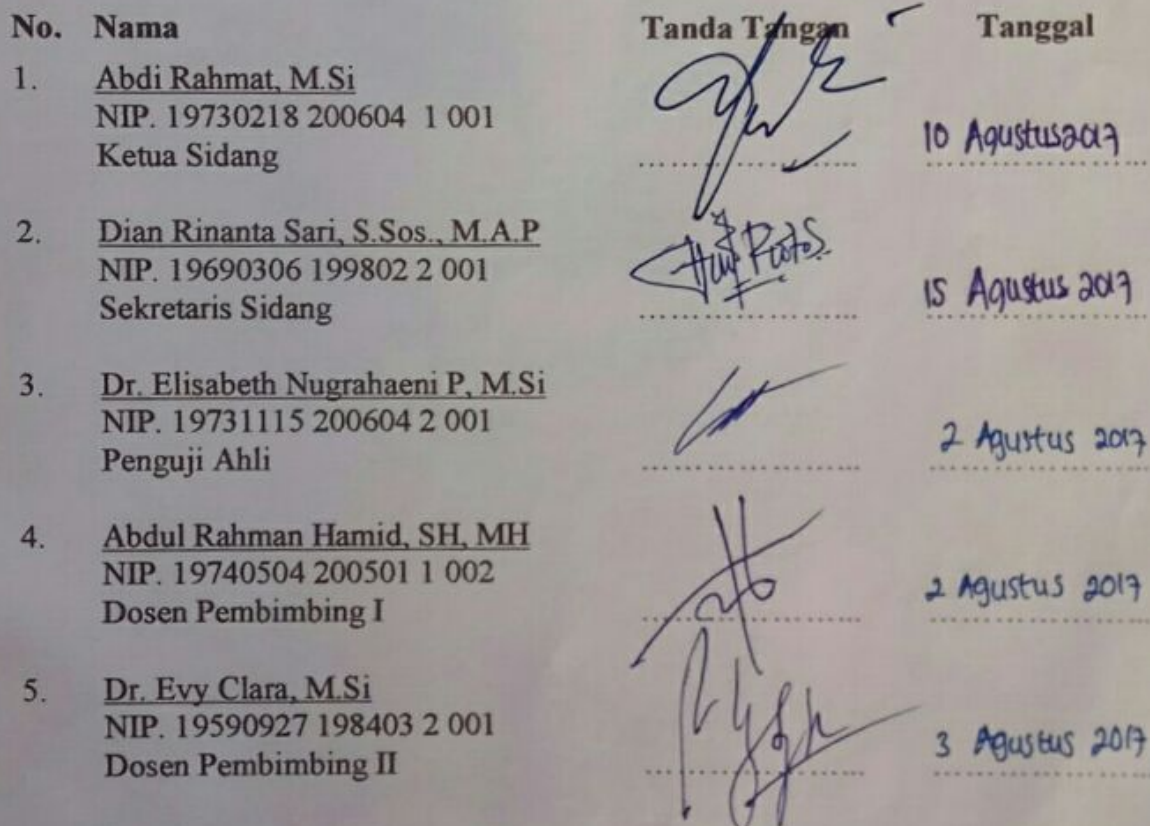 No. Nama Tanda Tangan Tanggal
1. Abdi Rahmat, M.Si
NIP. 19730218 200604 1 001
Ketua Sidang 10 Agustus 2017
2. Dian Rinanta Sari, S.Sos., M.A.P
NIP. 19690306 199802 2 001
Sekretaris Sidang 15 Agustus 2017
3. Dr. Elisabeth Nugrahaeni P, M.Si
NIP. 19731115 200604 2 001
Penguji Ahli 2 Agustus 2017
4. Abdul Rahman Hamid, SH, MH
NIP. 19740504 200501 1 002
Dosen Pembimbing I 2 Agustus 2017
5. Dr. Evy Clara, M.Si
NIP. 19590927 198403 2 001
Dosen Pembimbing II 3 Agustus 2017